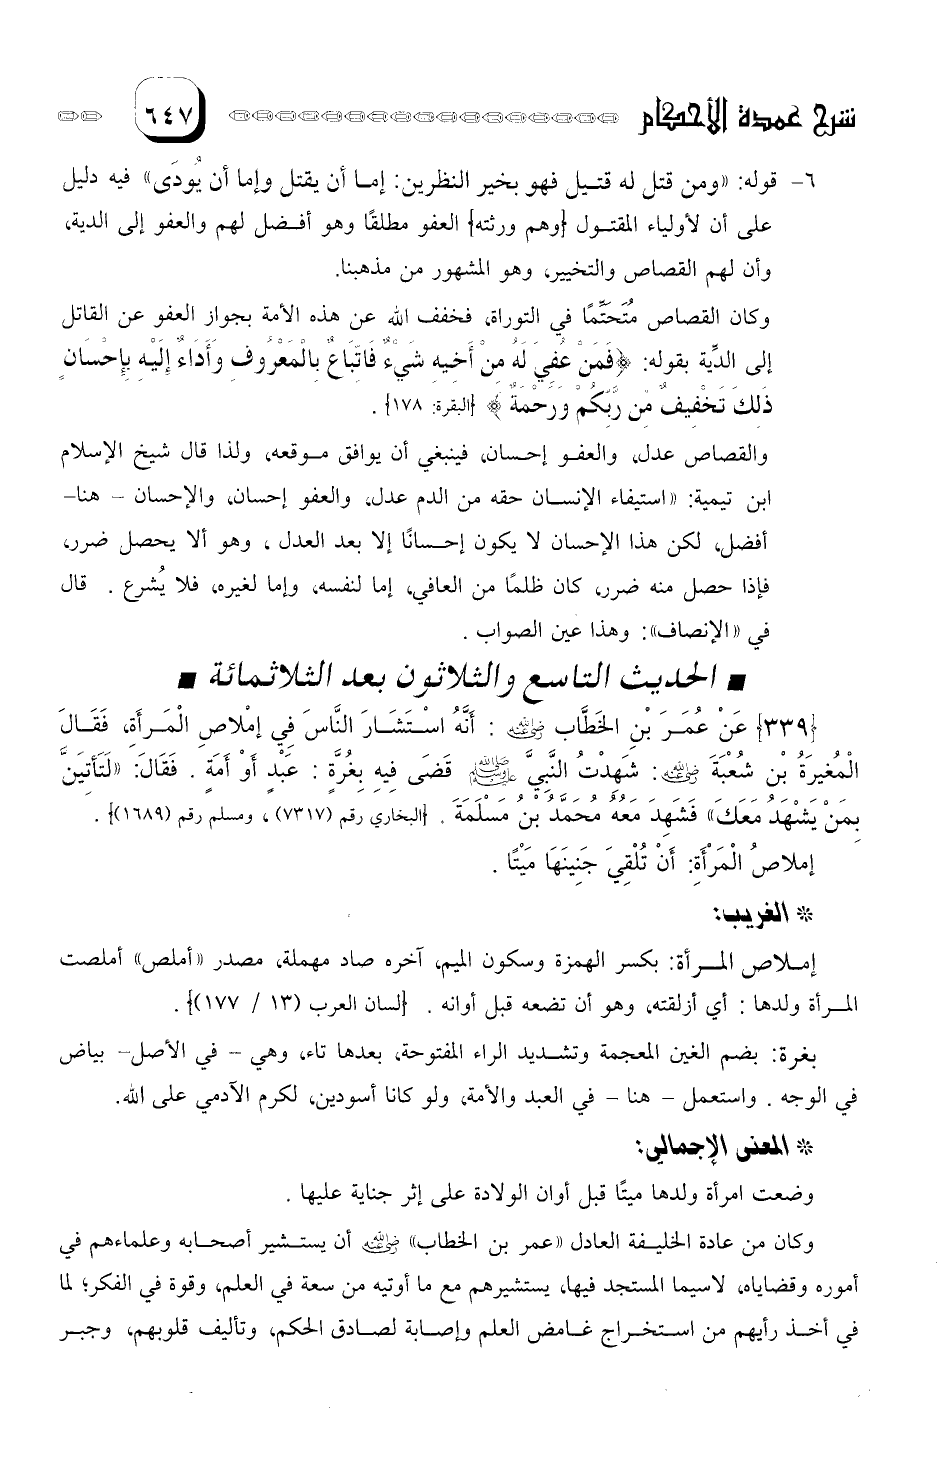 شرح عمدة الأحكام ٦٤٧
٦- قوله: «ومن قتل له قتيل فهو بخير النظرين: إما أن يقتل وإما أن يُودَى» فيه دليل
على أن لأولياء المقتول {وهم ورثته} العفو مطلقًا وهو أفضل لهم والعفو إلى الدية،
وأن لهم القصاص والتخيير، وهو المشهور من مذهبنا.
وكان القصاص مُتَحَتِّمًا في التوراة، فخفف الله عن هذه الأمة بجواز العفو عن القاتل
إلى الدِّية بقوله: ﴿فَمَنْ عُفِيَ لَهُ مِنْ أَخِيهِ شَيْءٌ فَاتِّبَاعٌ بِالْمَعْرُوفِ وَأَدَاءٌ إِلَيْهِ بِإِحْسَانٍ
ذَلِكَ تَخْفِيفٌ مِّن رَّبِّكُمْ وَرَحْمَةٌ﴾ {البقرة: ١٧٨} .
والقصاص عدل، والعفو إحسان، فينبغي أن يوافق موقعه، ولذا قال شيخ الإسلام
ابن تيمية: «استيفاء الإنسان حقه من الدم عدل، والعفو إحسان، والإحسان - هنا-
أفضل، لكن هذا الإحسان لا يكون إحسانًا إلا بعد العدل ، وهو ألا يحصل ضرر،
فإذا حصل منه ضرر، كان ظلمًا من العافي، إما لنفسه، وإما لغيره، فلا يُشرع . قال
في «الإنصاف»: وهذا عين الصواب .
■ الحديث التاسع والثلاثون بعد الثلاثمائة ■
{٣٣٩} عَنْ عُمَرَ بْنِ الخَطَّابِ رضي الله عنه : أَنَّهُ اسْتَشَارَ النَّاسَ فِي إِمْلَاصِ الْمَرأَةِ، فَقَالَ
الْمُغِيرَةُ بْنِ شُعْبَةَ رضي الله عنه : شَهِدْتُ النَّبِيَّ ﷺ قَضَى فِيهِ بِغُرَّةٍ : عَبْدٍ أَوْ أَمَةٍ . فَقَالَ: «لَتَأْتِيَنَّ
بِمَنْ يَشْهَدُ مَعَكَ» فَشَهِدَ مَعَهُ مُحَمَّدُ بْنُ مَسْلَمَةَ . {البخاري رقم (٧٣١٧) ، ومسلم رقم (١٦٨٩)} .
إملاصُ الْمَرْأَةِ: أَنْ تُلْقِيَ جَنِينَهَا مَيتًا .
* الغريب:
إملاص المرأة: بكسر الهمزة وسكون الميم، آخره صاد مهملة، مصدر «أملص» أملصت
المرأة ولدها : أي أزلقته، وهو أن تضعه قبل أوانه . {لسان العرب (١٣ / ١٧٧)} .
بغرة: بضم الغين المعجمة وتشديد الراء المفتوحة، بعدها تاء، وهي - في الأصل- بياض
في الوجه . واستعمل - هنا - في العبد والأمة، ولو كانا أسودين، لكرم الآدمي على الله.
* المعنى الإجمالي:
وضعت امرأة ولدها ميتًا قبل أوان الولادة على إثر جناية عليها .
وكان من عادة الخليفة العادل «عمر بن الخطاب» رضي الله عنه أن يستشير أصحابه وعلماءهم في
أموره وقضاياه، لاسيما المستجد فيها، يستشيرهم مع ما أوتيه من سعة في العلم، وقوة في الفكر؛ لما
في أخذ رأيهم من استخراج غامض العلم وإصابة لصادق الحكم، وتأليف قلوبهم، وجبر